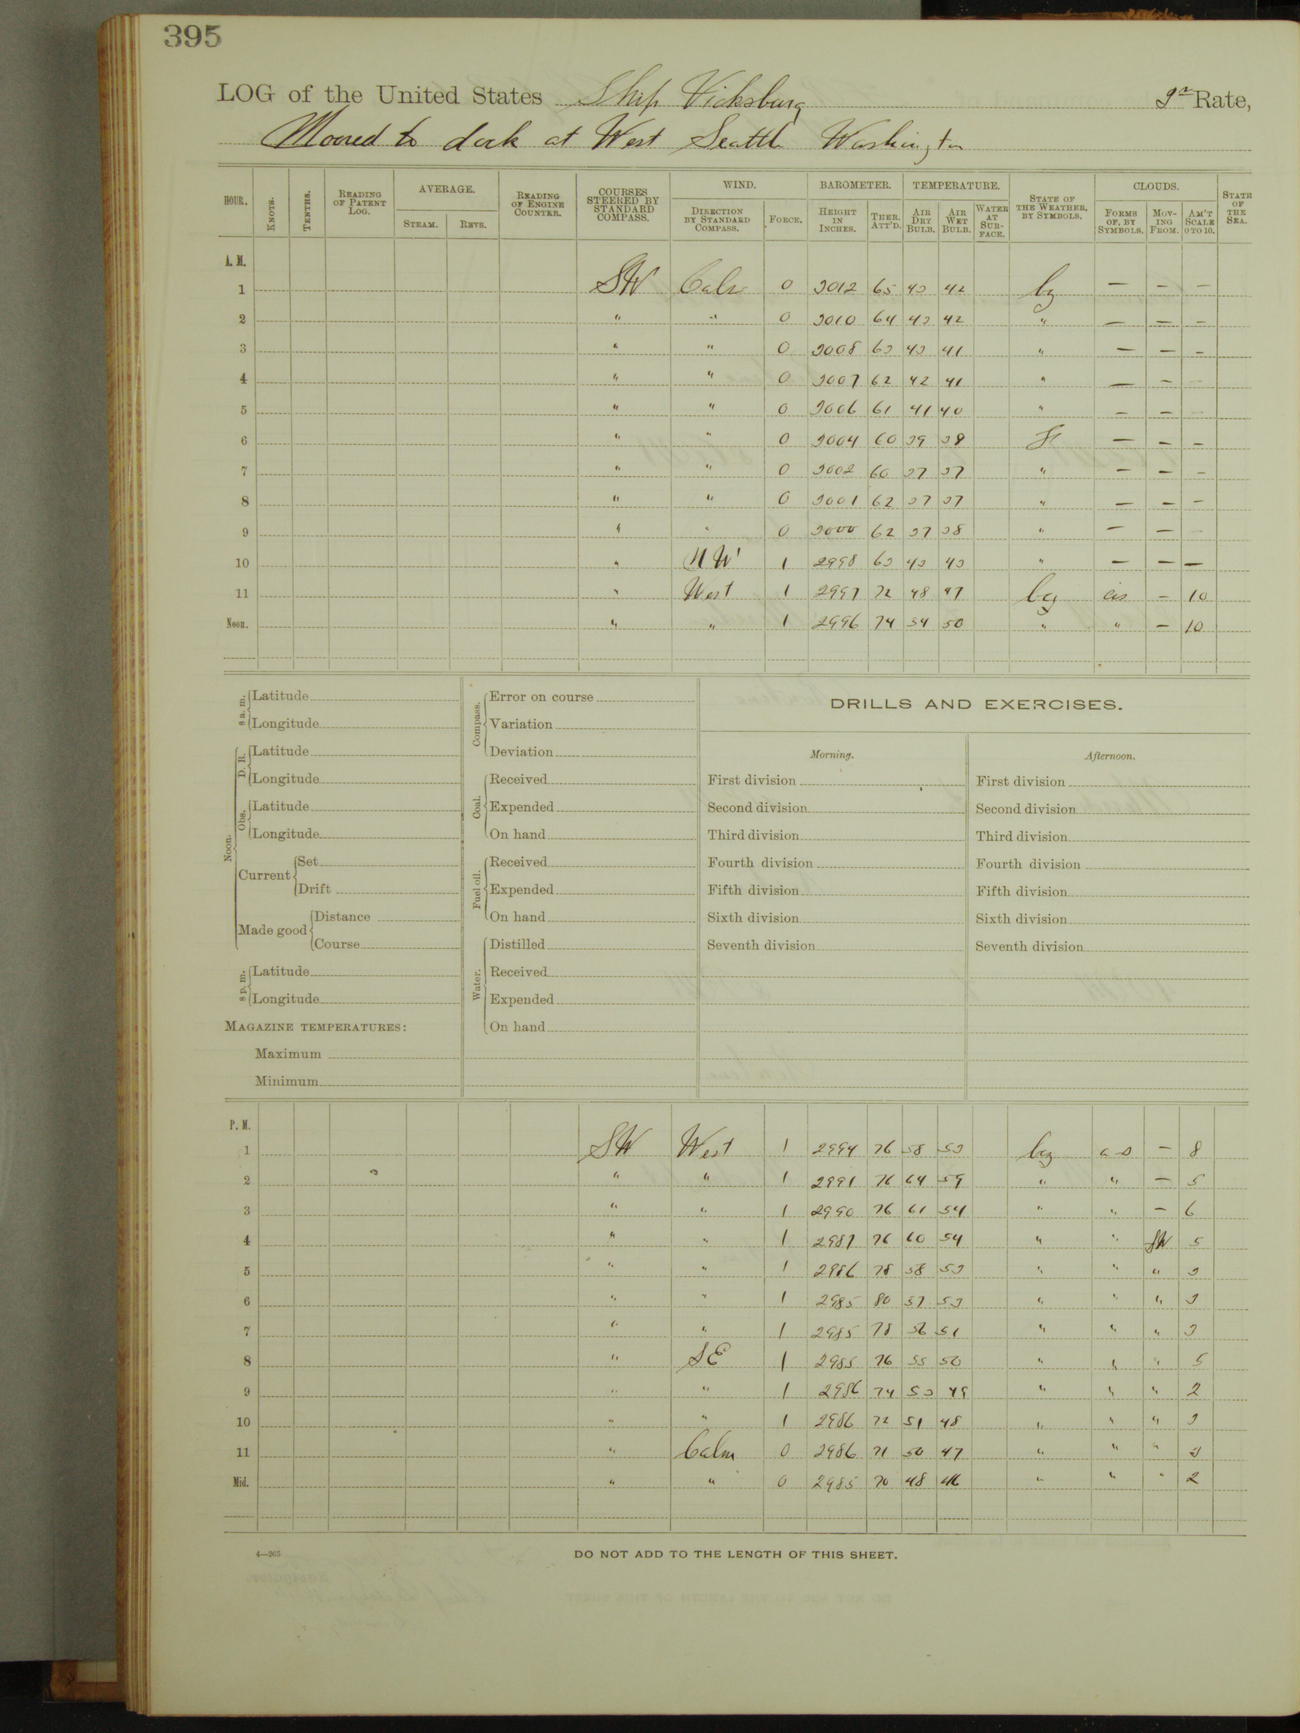 395
LOG of the United States Ship Vicksburg 3d Rate,
Moored to dock at West Seattle Washington
HOUR. KNOTS. TENTHS. READING OF PATENT LOG. AVERAGE. STEAM. REVS. READING OF ENGINE COUNTER. COURSES STEERED BY STANDARD COMPASS. WIND. DIRECTION BY STANDARD COMPASS. FORCE. BAROMETER. HEIGHT IN INCHES. THER. ATT'D. TEMPERATURE. AIR DRY BULB. AIR WET BULB. WATER AT SURFACE. STATE OF THE WEATHER, BY SYMBOLS. CLOUDS. FORMS OF, BY SYMBOLS. MOVING FROM. AM'T SCALE 0 TO 10. STATE OF THE SEA.
A. M.
1 SW Calm 0 3012 65 43 42 bz — — —
2 " " 0 3010 64 43 42 " — — —
3 " " 0 3008 63 43 41 " — — —
4 " " 0 3007 62 42 41 " — — —
5 " " 0 3006 61 41 40 " — — —
6 " " 0 3004 60 39 38 — — —
7 " " 0 3002 60 37 37 " — — —
8 " " 0 3001 62 37 37 " — — —
9 " " 0 3000 62 37 38 " — — —
10 " NW 1 2998 63 43 43 " — — —
11 " West 1 2997 72 48 47 bcz cis — 10
Noon. " " 1 2996 74 54 50 " " — 10
8 a. m. Latitude
Longitude
Noon. D. R. Latitude
Longitude
Obs. Latitude
Longitude
Current Set
Drift
Made good Distance
Course
8 p. m. Latitude
Longitude
MAGAZINE TEMPERATURES:
Maximum
Minimum
Compass. Error on course
Variation
Deviation
Coal. Received
Expended
On hand
Fuel oil. Received
Expended
On hand
Water. Distilled
Received
Expended
On hand
DRILLS AND EXERCISES.
Morning.
First division
Second division
Third division
Fourth division
Fifth division
Sixth division
Seventh division
Afternoon.
First division
Second division
Third division
Fourth division
Fifth division
Sixth division
Seventh division
P. M.
1 SW West 1 2994 76 58 53 bcz — 8
2 " " 1 2991 76 64 59 " " — 5
3 " " 1 2990 76 61 54 " " — 6
4 " " 1 2987 76 60 54 " " SW 5
5 " " 1 2986 78 58 53 " " " 3
6 " " 1 2985 80 57 53 " " " 3
7 " " 1 2985 78 56 51 " " " 3
8 " SE 1 2985 76 55 50 " " " 5
9 " " 1 2986 74 53 49 " " " 2
10 " " 1 2986 72 51 48 " " " 3
11 " Calm 0 2986 71 50 47 " " "
Mid. " " 0 2985 70 48 46 " " " 2
4—265
DO NOT ADD TO THE LENGTH OF THIS SHEET.